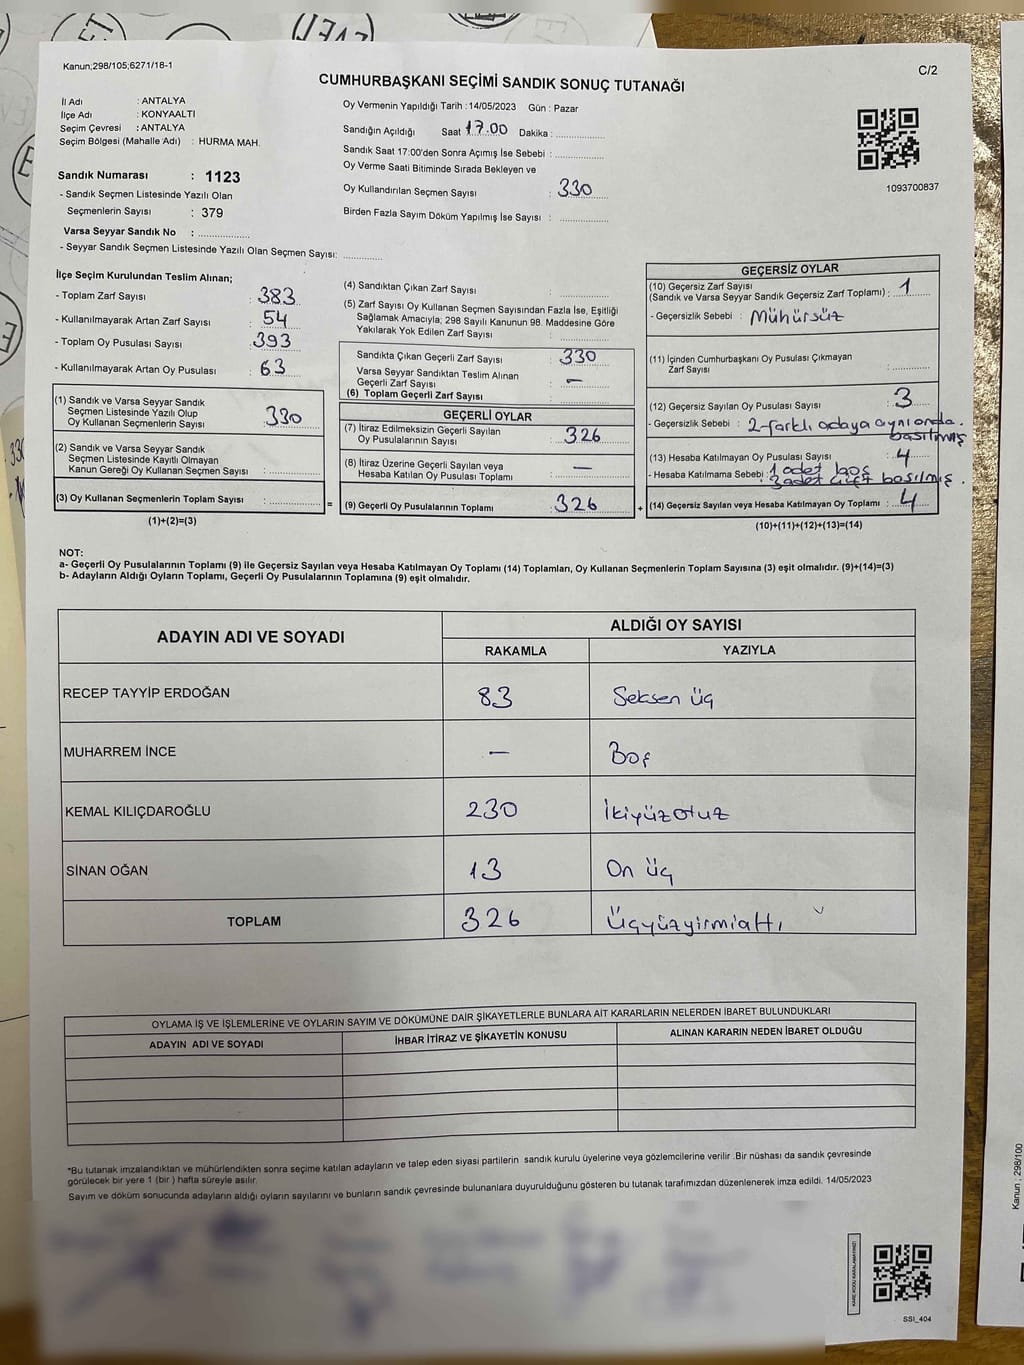 Kanun;298/105;6271/18-1
C/2
CUMHURBAŞKANI SEÇİMİ SANDIK SONUÇ TUTANAĞI
İl Adı : ANTALYA
İlçe Adı : KONYAALTI
Seçim Çevresi : ANTALYA
Seçim Bölgesi (Mahalle Adı) : HURMA MAH.
Sandık Numarası : 1123
- Sandık Seçmen Listesinde Yazılı Olan
Seçmenlerin Sayısı : 379
Varsa Seyyar Sandık No : ................
- Seyyar Sandık Seçmen Listesinde Yazılı Olan Seçmen Sayısı: ............
Oy Vermenin Yapıldığı Tarih :14/05/2023 Gün : Pazar
Sandığın Açıldığı Saat 17.00 Dakika : ...............
Sandık Saat 17:00'den Sonra Açımış İse Sebebi : ...............
Oy Verme Saati Bitiminde Sırada Bekleyen ve
Oy Kullandırılan Seçmen Sayısı : 330
Birden Fazla Sayım Döküm Yapılmış İse Sayısı : ...............
1093700837
İlçe Seçim Kurulundan Teslim Alınan;
- Toplam Zarf Sayısı : 383
- Kullanılmayarak Artan Zarf Sayısı : 54
- Toplam Oy Pusulası Sayısı : 393
- Kullanılmayarak Artan Oy Pusulası : 63
(1) Sandık ve Varsa Seyyar Sandık
Seçmen Listesinde Yazılı Olup
Oy Kullanan Seçmenlerin Sayısı : 330
(2) Sandık ve Varsa Seyyar Sandık
Seçmen Listesinde Kayıtlı Olmayan
Kanun Gereği Oy Kullanan Seçmen Sayısı : ...............
(3) Oy Kullanan Seçmenlerin Toplam Sayısı : ............... =
(1)+(2)=(3)
(4) Sandıktan Çıkan Zarf Sayısı : ...............
(5) Zarf Sayısı Oy Kullanan Seçmen Sayısından Fazla İse, Eşitliği
Sağlamak Amacıyla; 298 Sayılı Kanunun 98. Maddesine Göre
Yakılarak Yok Edilen Zarf Sayısı : ...............
Sandıkta Çıkan Geçerli Zarf Sayısı : 330
Varsa Seyyar Sandıktan Teslim Alınan
Geçerli Zarf Sayısı : —
(6) Toplam Geçerli Zarf Sayısı : ...............
GEÇERLİ OYLAR
(7) İtiraz Edilmeksizin Geçerli Sayılan
Oy Pusulalarının Sayısı : 326
(8) İtiraz Üzerine Geçerli Sayılan veya
Hesaba Katılan Oy Pusulası Toplamı : —
(9) Geçerli Oy Pusulalarının Toplamı : 326 +
GEÇERSİZ OYLAR
(10) Geçersiz Zarf Sayısı
(Sandık ve Varsa Seyyar Sandık Geçersiz Zarf Toplamı) : 1
- Geçersizlik Sebebi : Mühürsüz
(11) İçinden Cumhurbaşkanı Oy Pusulası Çıkmayan
Zarf Sayısı : ............
(12) Geçersiz Sayılan Oy Pusulası Sayısı : 3
- Geçersizlik Sebebi : 2 farklı adaya aynı anda.
basılmış
(13) Hesaba Katılmayan Oy Pusulası Sayısı : 4
- Hesaba Katılmama Sebebi : 1 adet boş
3 adet çift basılmış .
(14) Geçersiz Sayılan veya Hesaba Katılmayan Oy Toplamı : 4
(10)+(11)+(12)+(13)=(14)
NOT:
a- Geçerli Oy Pusulalarının Toplamı (9) ile Geçersiz Sayılan veya Hesaba Katılmayan Oy Toplamı (14) Toplamları, Oy Kullanan Seçmenlerin Toplam Sayısına (3) eşit olmalıdır. (9)+(14)=(3)
b- Adayların Aldığı Oyların Toplamı, Geçerli Oy Pusulalarının Toplamına (9) eşit olmalıdır.
ADAYIN ADI VE SOYADI ALDIĞI OY SAYISI
RAKAMLA YAZIYLA
RECEP TAYYİP ERDOĞAN 83 Seksen üç
MUHARREM İNCE — Boş
KEMAL KILIÇDAROĞLU 230 İkiyüzotuz
SİNAN OĞAN 13 On üç
TOPLAM 326 Üçyüzyirmialtı
OYLAMA İŞ VE İŞLEMLERİNE VE OYLARIN SAYIM VE DÖKÜMÜNE DAİR ŞİKAYETLERLE BUNLARA AİT KARARLARIN NELERDEN İBARET BULUNDUKLARI
ADAYIN ADI VE SOYADI İHBAR İTİRAZ VE ŞİKAYETİN KONUSU ALINAN KARARIN NEDEN İBARET OLDUĞU
*Bu tutanak imzalandıktan ve mühürlendikten sonra seçime katılan adayların ve talep eden siyasi partilerin sandık kurulu üyelerine veya gözlemcilerine verilir .Bir nüshası da sandık çevresinde
görülecek bir yere 1 (bir ) hafta süreyle asılır.
Sayım ve döküm sonucunda adayların aldığı oyların sayılarını ve bunların sandık çevresinde bulunanlara duyurulduğunu gösteren bu tutanak tarafımızdan düzenlenerek imza edildi. 14/05/2023
KARE KODU KARALAMAYINIZ!
SSI_404
Kanun ; 298/100